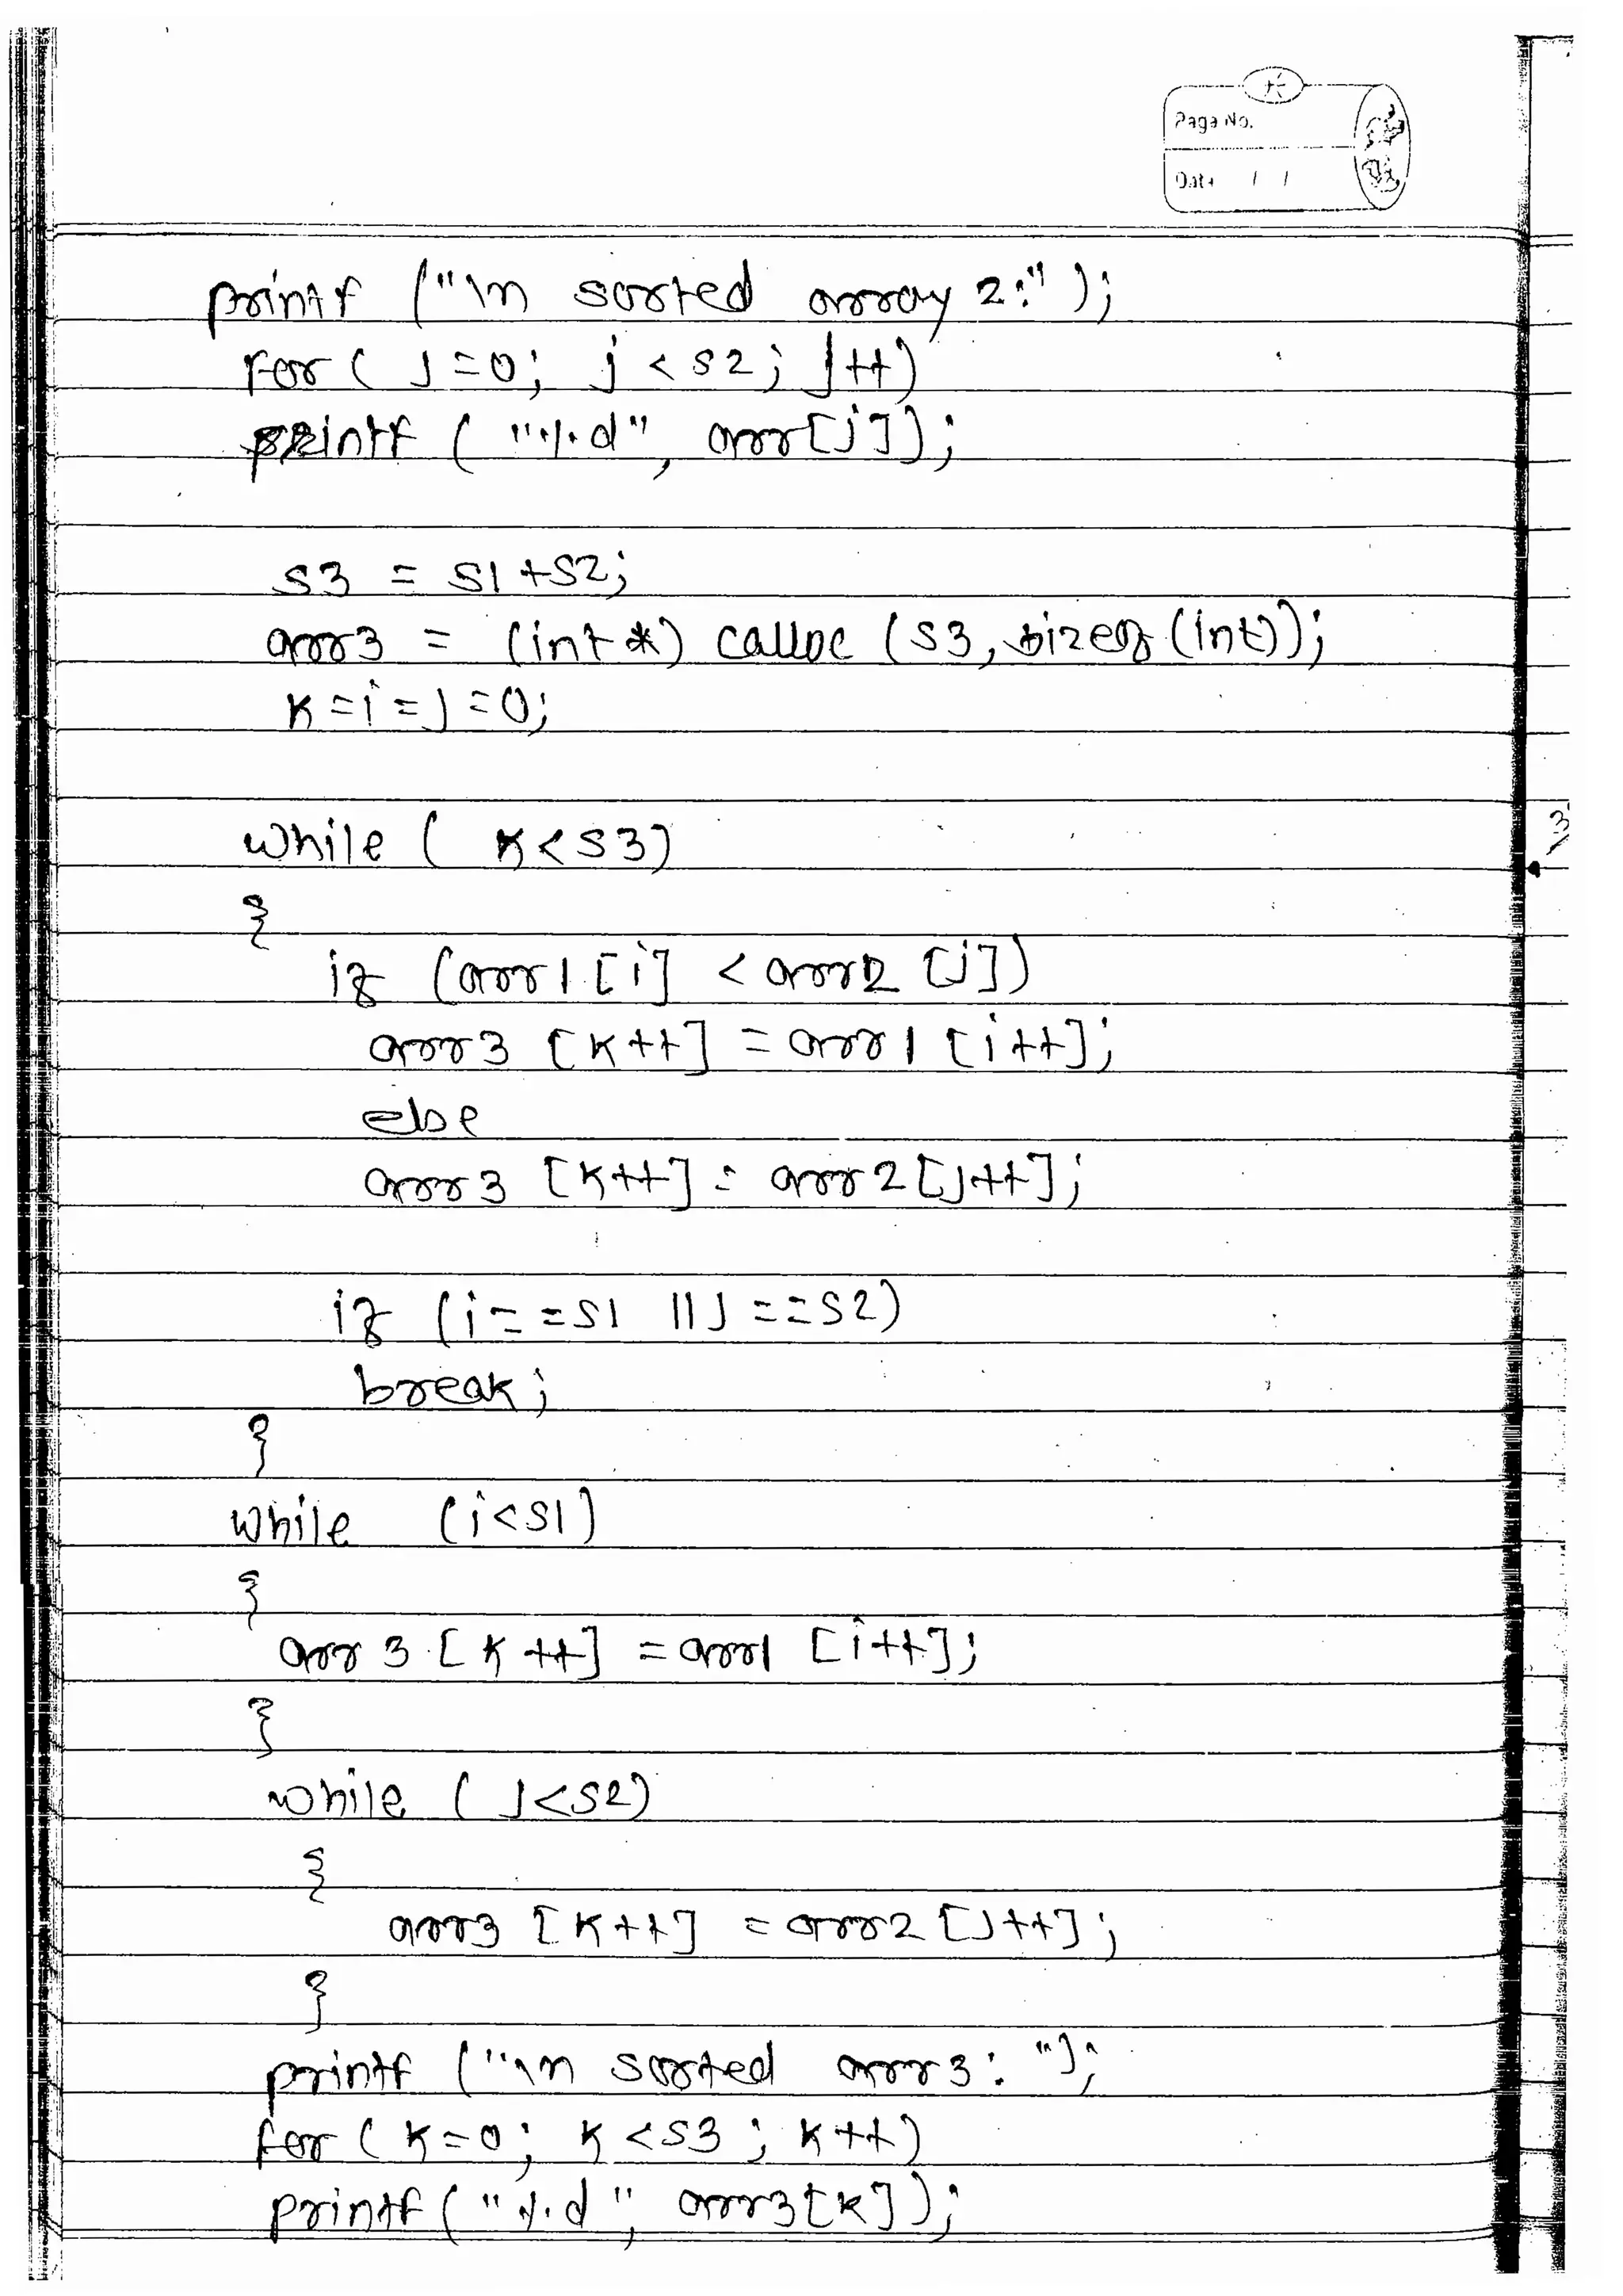 Page No.
Date / /
printf ("\n sorted array 2:");
for ( j=0; j<s2; j++)
printf ( "%d", arr[j]);
s3 = s1+s2;
arr3 = (int*) calloc (s3, sizeof (int));
k=i=j=0;
while ( k<s3)
{
if (arr1[i] < arr2 [j])
arr3 [k++] = arr1 [i++];
else
arr3 [k++] = arr2[j++];
if (i==s1 || j==s2)
break;
}
while (i<s1)
{
arr3 [k++] = arr1 [i++];
}
while ( j<s2)
{
arr3 [k++] = arr2 [j++];
}
printf ("\n sorted arr3: ");
for ( k=0; k<s3 ; k++)
printf ( "%d", arr3[k]);
3